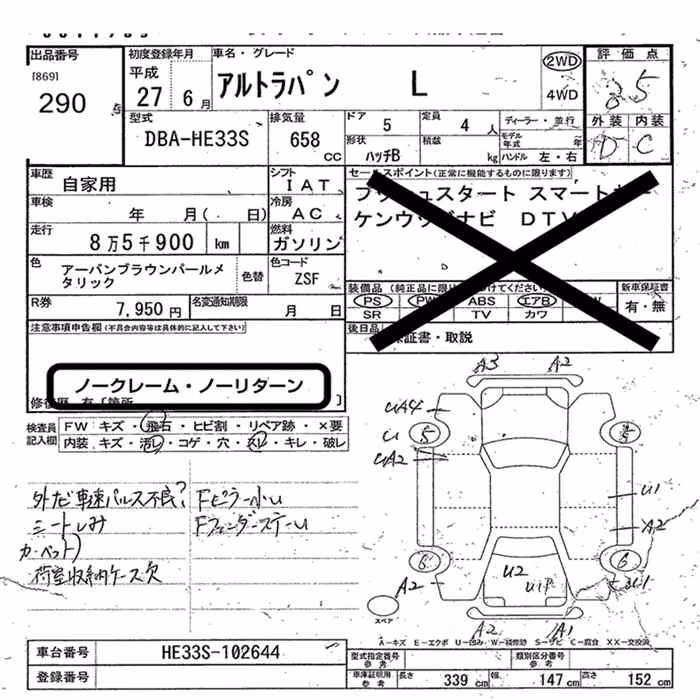 出品番号 初度登録年月 車名・グレード 評価点
[869] 平成 2WD
290 27 6月 アルトラパン L 4WD 3.5
型式 排気量 ドア 5 定員 4人 ディーラー・並行 外装 内装
DBA-HE33S 658 CC 形状 積載 モデル年式 年 D C
ハッチB kg ハンドル 左・右
車歴 シフト セールスポイント(正常に機能するものに限ります)
自家用 IAT プッシュスタート スマートキー
車検 冷房 ケンウッドナビ DTV
年 月( 日) AC
走行 燃料
8万5千900 km ガソリン
色 色コード
アーバンブラウンパールメタリック 色替 ZSF 装備品 新車保証書
PS PW ABS エアB W 有・無
R券 名変通知期限 SR TV カワ
7,950円 月 日 後日品 保証書・取説
注意事項申告欄(不具合内容等は具体的に記入して下さい)
ノークレーム・ノーリターン
修復歴 有 [箇所 ]
検査員記入欄 FW キズ・飛石・ヒビ割・リペア跡・×要
内装 キズ・汚レ・コゲ・穴・スレ・キレ・破レ
外ナビ車速パルス不良? Fピラー小U
シートしみ FフェンダーステーU
カーペット)
荷室収納ケース欠
A3 A2
UA4
U 5 5
UA2
U1
A2
6 6
A2 U2 U1
A2 A1
スペア
A-キズ E-エクボ U-凹み W-補修跡 S-サビ C-腐食 XX-交換済
車台番号 HE33S-102644 型式指定番号 参考 類別区分番号 参考
登録番号 車庫証明用 参考 長さ 339cm 幅 147cm 高さ 152cm